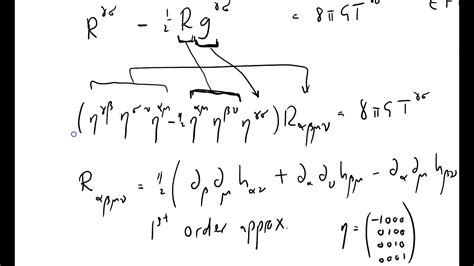 R^{γσ} - ½ R g^{γσ} = 8πG T^{γσ} E F
(η^{γβ} η^{σν} η^{αμ} - ½ η^{αμ} η^{βν} η^{γσ}) R_{αβμν} = 8πG T^{γσ}
R_{αβμν} = ½ (∂_β ∂_μ h_{αν} + ∂_α ∂_ν h_{βμ} - ∂_α ∂_μ h_{βν}
1st order approx. η = (-1000
0100
0010
0001)